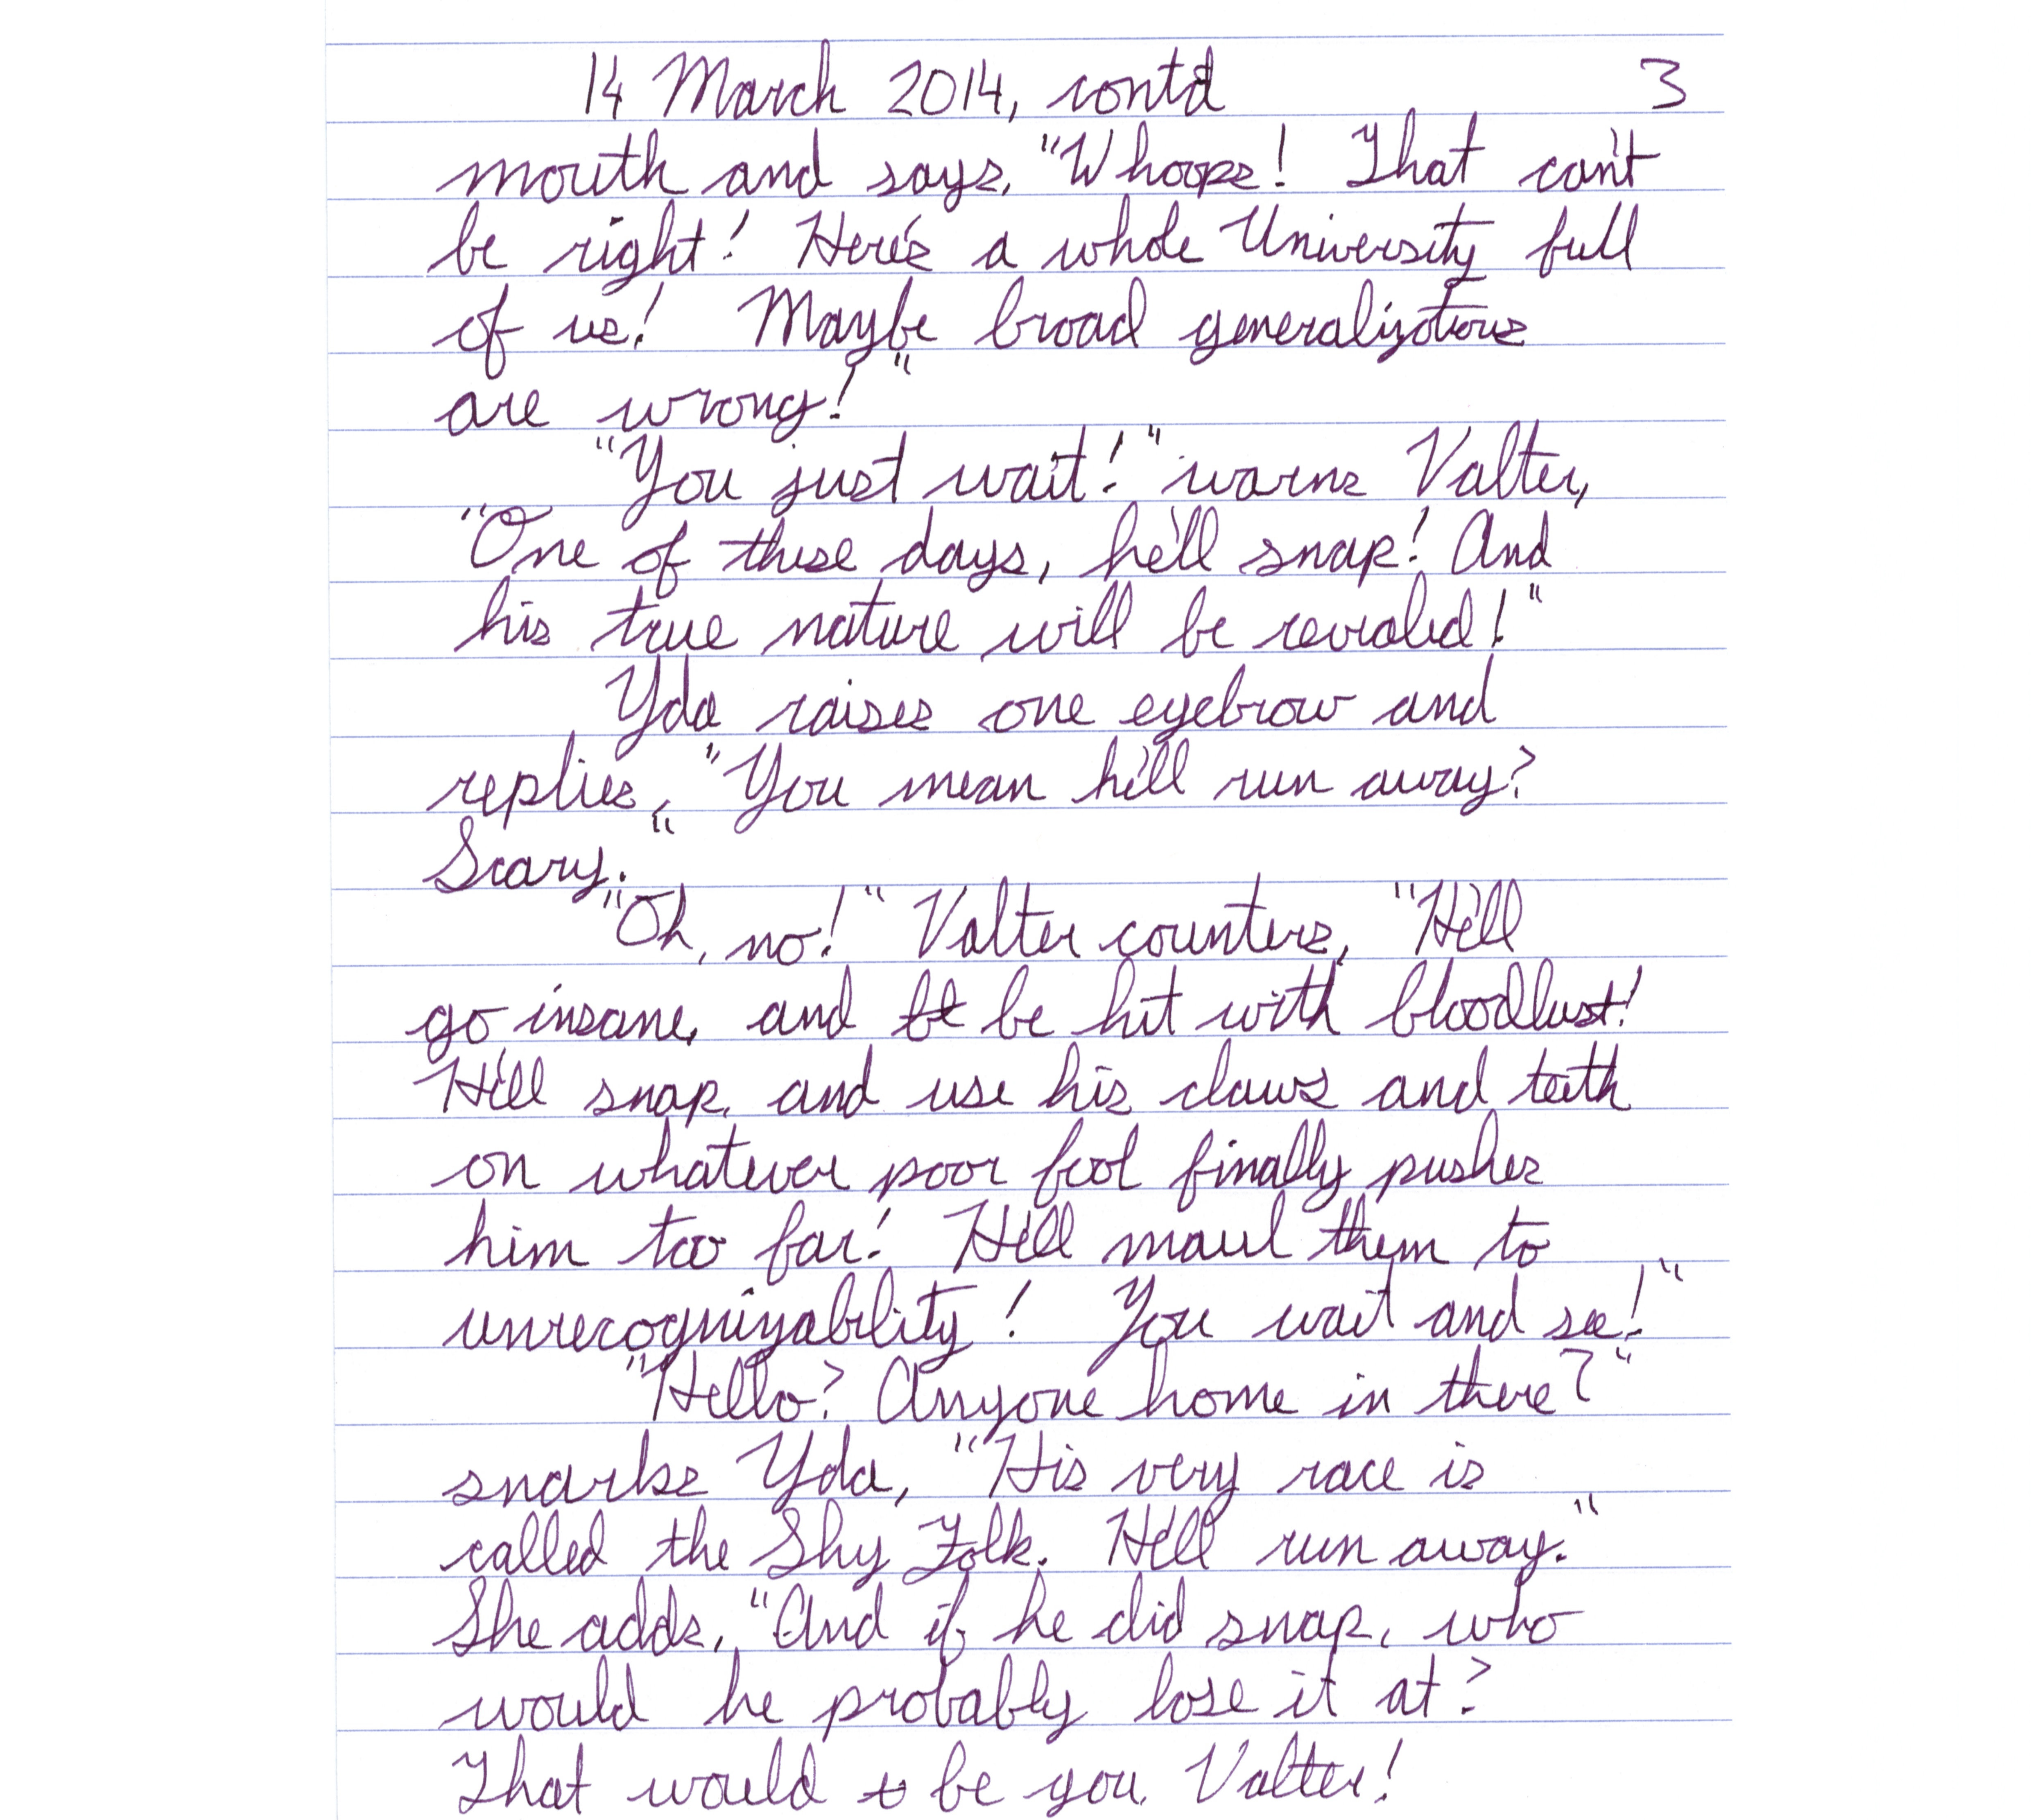 14 March 2014, contd 3
mouth and says, "Whoops! That can't
be right! Here's a whole University full
of us! Maybe broad generalizations
are wrong!"
"You just wait!" warns Valter,
"One of these days, he'll snap! And
his true nature will be revealed!"
Yda raises one eyebrow and
replies, "You mean he'll run away?
Scary."
"Oh, no!" Valter counters, "He'll
go insane, and be be hit with bloodlust!
He'll snap, and use his claws and teeth
on whatever poor fool finally pushes
him too far! He'll maul them to
unrecognizability! You wait and see!"
"Hello? Anyone home in there?"
snarks Yda, "His very race is
called the Shy Folk. He'll run away."
She adds, "And if he did snap, who
would he probably lose it at?
That would be you, Valter!